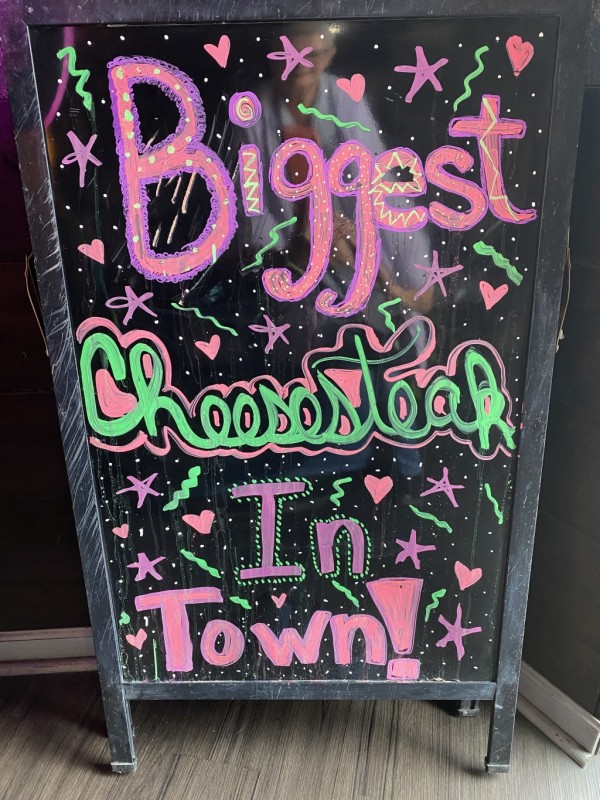 Biggest
Cheesesteak
In
Town!